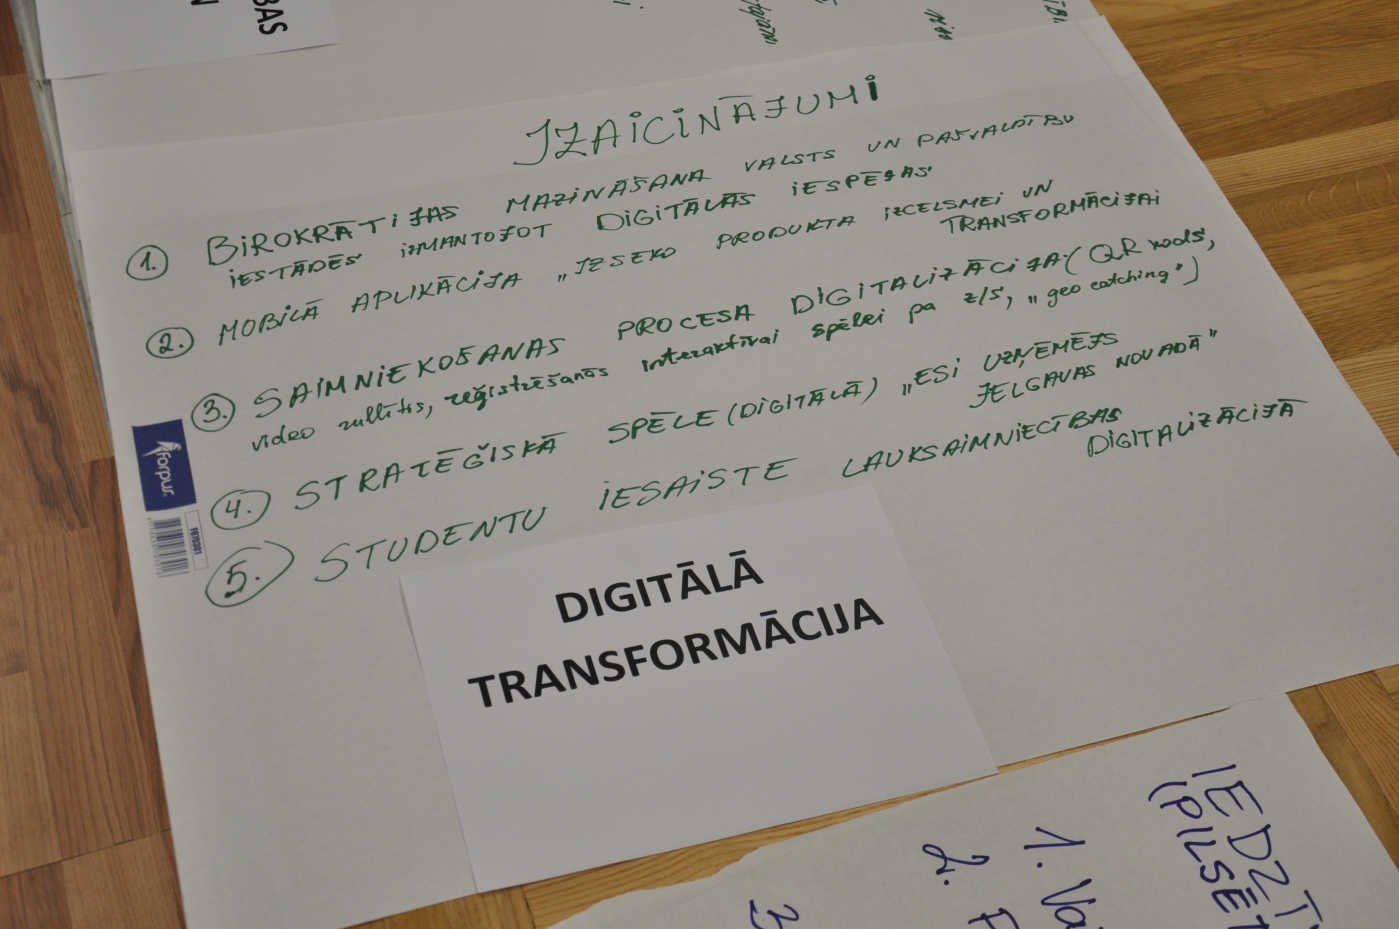 BAS
IZAICINĀJUMI
1. BIROKRĀTIJAS MAZINĀŠANA VALSTS UN PAŠVALDĪBU
IESTĀDĒS IZMANTOJOT DIGITĀLĀS IESPĒJAS
2. MOBILĀ APLIKĀCIJA „IZSEKO PRODUKTA IZCELSMEI UN
TRANSFORMĀCIJAI
3. SAIMNIEKOŠANAS PROCESA DIGITALIZĀCIJA (QR kods,
video rullītis, reģistrēšanās interaktīvai spēlei pa z/s, „geo catching")
4. STRATĒĢISKĀ SPĒLE (DIGITĀLĀ) „ESI UZŅĒMĒJS
JELGAVAS NOVADĀ"
5. STUDENTU IESAISTE LAUKSAIMNIECĪBAS
DIGITALIZĀCIJĀ
forpus
DIGITĀLĀ
TRANSFORMĀCIJA
IEDZT
(PILSĒT
1. Va
2.
3